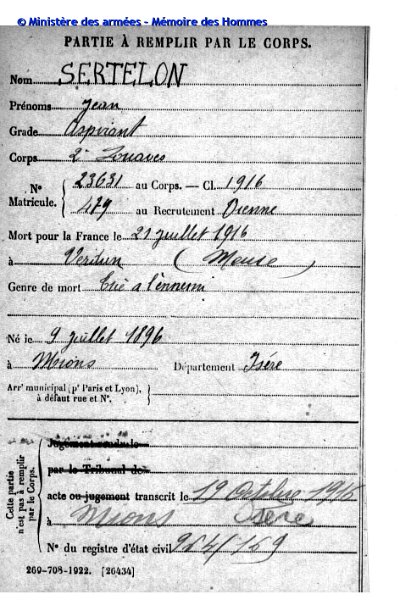 © Ministère des armées - Mémoire des Hommes
PARTIE À REMPLIR PAR LE CORPS.
Nom SERTELON
Prénoms Jean
Grade Aspirant
Corps 2e Zouaves
N° Matricule. 23631 au Corps. — Cl. 1916
479 au Recrutement Vienne
Mort pour la France le 21 juillet 1916
à Verdun (Meuse)
Genre de mort Tué à l'ennemi
Né le 9 juillet 1896
à Mions Département Isère
Arrt municipal (pr Paris et Lyon), à défaut rue et N°.
Cette partie n'est pas à remplir par le Corps.
Jugement rendu le
par le Tribunal de
acte ou jugement transcrit le 19 Octobre 1916
à Mions Isère
N° du registre d'état civil 964/169
269-708-1922. [26434]